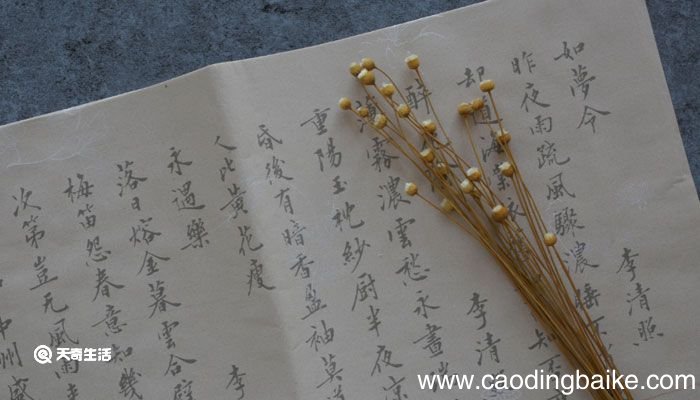 如夢令 李清照
昨夜雨疏風驟濃睡不
却道海棠依 知否
醉 李清
薄霧濃雲愁永晝瑞
重陽玉枕紗厨半夜涼
昏後有暗香盈袖莫道
人比黃花瘦
永遇樂 李
落日熔金暮雲合璧
梅笛怨春意知幾
次第豈无風雨
中州盛
天奇生活
www.caodingbaike.com